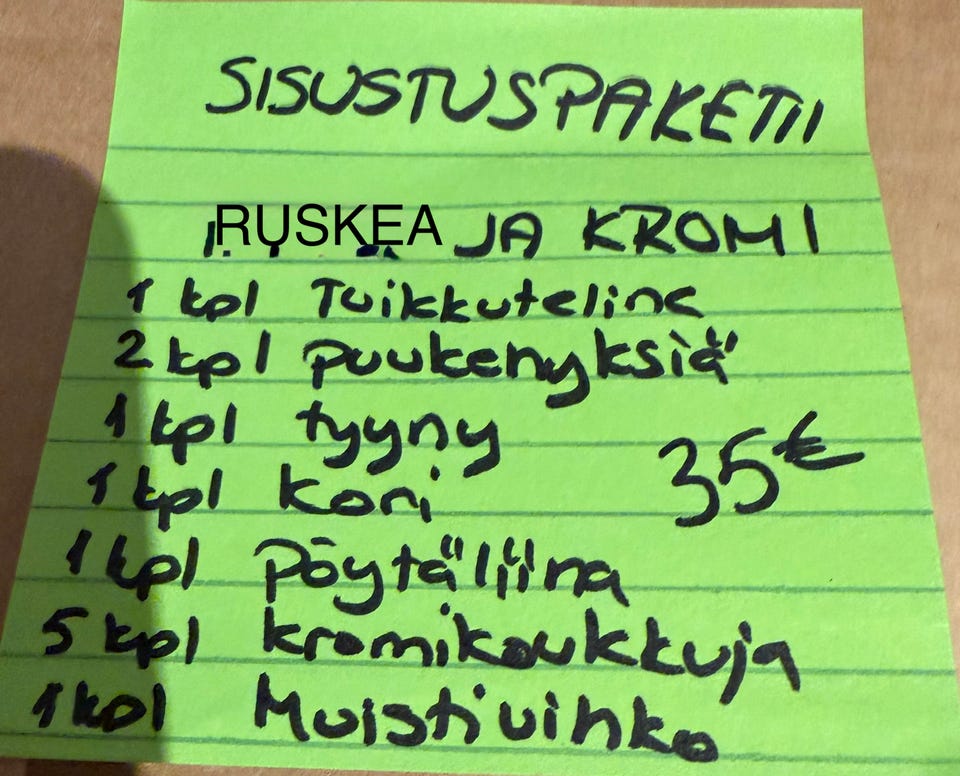 SISUSTUSPAKETTI
RUSKEA JA KROMI
1 kpl Tuikkuteline
2 kpl puukenyksiä
1 kpl tyyny
1 kpl kori
35€
1 kpl pöytäliina
5 kpl kromikoukkuja
1 kpl Muistivihko